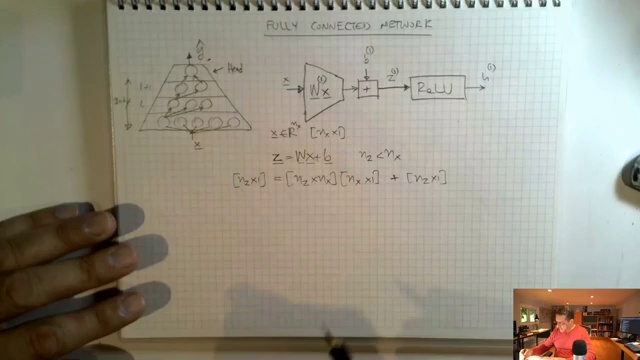 FULLY CONNECTED NETWORK
ŷ
Head
l+1
l
x
x
Wx^(1)
b^(1)
+
z^(1)
ReLU
h^(1)
x ∈ R^n_x [n_x×1]
z = Wx + b n_z < n_x
[n_z×1] = [n_z×n_x][n_x×1] + [n_z×1]